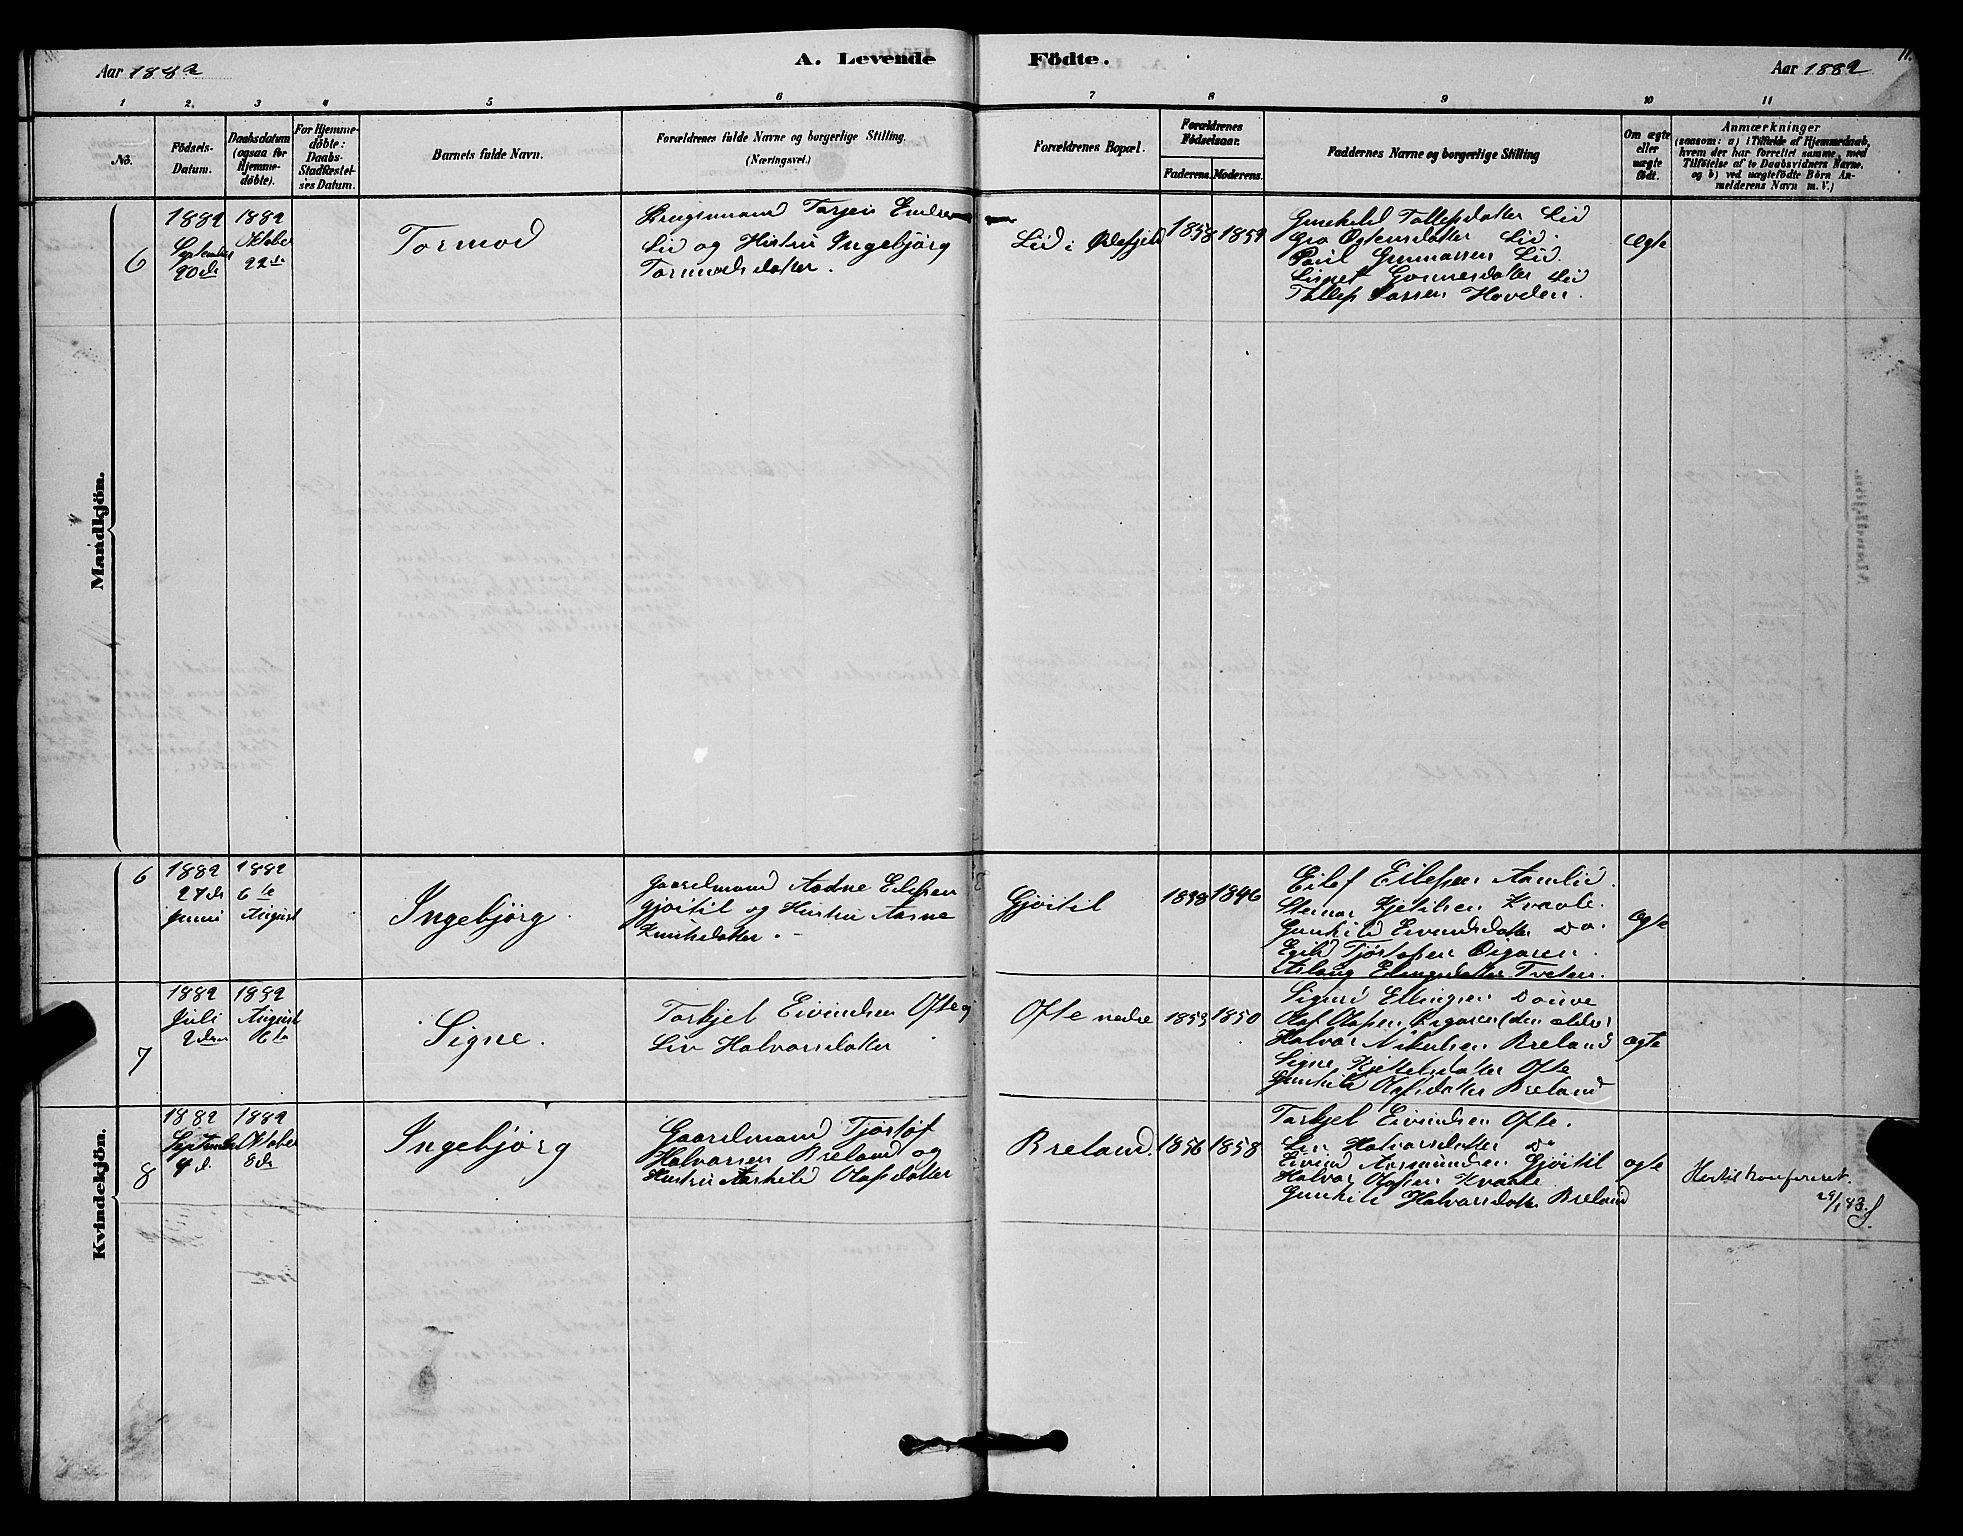 Aar 1882
A. Levende Födte.
Aar 1882
11.
1 2. 3 4 5 6 7 8 9 10 11
No.
Födsels-
Datum.
Daabsdatum
(ogsaa for
Hjemme-
döbte).
For Hjemme-
döbte:
Daabs-
Stadfæstel-
ses Datum.
Barnets fulde Navn.
Forældrenes fulde Navne og borgerlige Stilling.
(Næringsvei.)
Forældrenes Bopæl.
Forældrenes
Födselsaar.
Faderens. Moderens.
Faddernes Navne og borgerlige Stilling
Om ægte
eller
uægte
födt.
Anmærkninger
(saasom: a) i Tilfælde af Hjemmedaab,
hvem der har forrettet samme, med
Tilföielse af to Daabsvidners Navne.
og b) ved uægtefödte Börn An-
melderens Navn m. V.)
Mandkjön.
6
1882
September
20de
1882
Oktober
22de
Tormod
Brugsmand Tarjei
Lid og Hustru Ingebjörg
Tormodsdatter.
Lid i
1858 1859
Gunhild Tollefsdatter Lid
Gro Ostensdatter Lid.
Poul Gunnarsen Lid.
Gunnesdatter Lid
Tollef Hovden.
ægte
Kvindekjön.
6
1882
27de
Juni
1882
6te
August
Ingebjörg.
Gaardmand Aadne Eilefsen
Gjöitil og Hustru Aasne
Knutsdatter.
Gjöitil
1838 1846
Eilef Eilefsen Aamlid.
Steinar Kjetilsen Kvaale.
Gunhild Eivindsdatter Do.
Tjöstofsen Öigaren.
Aslaug Ellingsdatter Tveten.
ægte
7
1882
Juli
2den
1882
August
6te
Signe.
Torkjel Eivindsen Ofte og
Liv Halvorsdatter
Ofte nedre
1853 1850
Sigurd Ellingsen
Olaf Olafsen Öigaren (den ældre)
Halvor Nikulsen Breland
Signe Kjetilsdatter Ofte
Gunhild Olafsdatter Breland
ægte
8
1882
September
4d.
1882
Oktober
8de
Ingebjörg
Gaardmand Tjöstöf
Halvorsen Breland og
Hustru Aashild Olafsdatter
Breland.
1856 1858
Torkjel Eivindsen Ofte.
Liv Halvorsdatter Do
Eivind Aasmundsen Gjöitil
Halvor Olafsen Kvaale
Gunhild Halvorsdatter Breland
ægte
Hertil konfereret.
29/1 83.